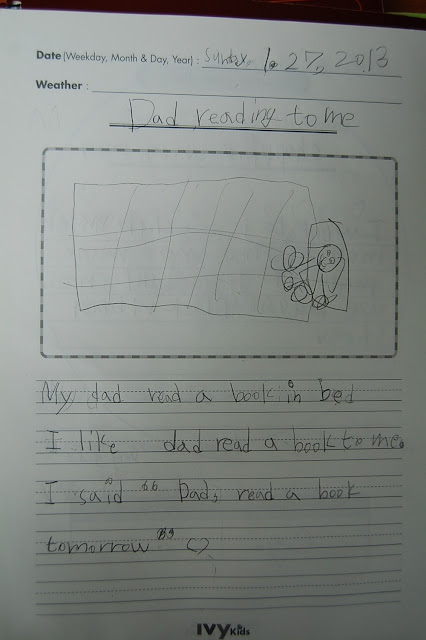 Date (Weekday, Month & Day, Year) : Sunday, 1. 27, 2013
Weather :
Dad reading to me
My dad read a book in bed
I like dad read a book to me.
I said “ Dad, read a book
tomorrow ” ♡
IVY Kids